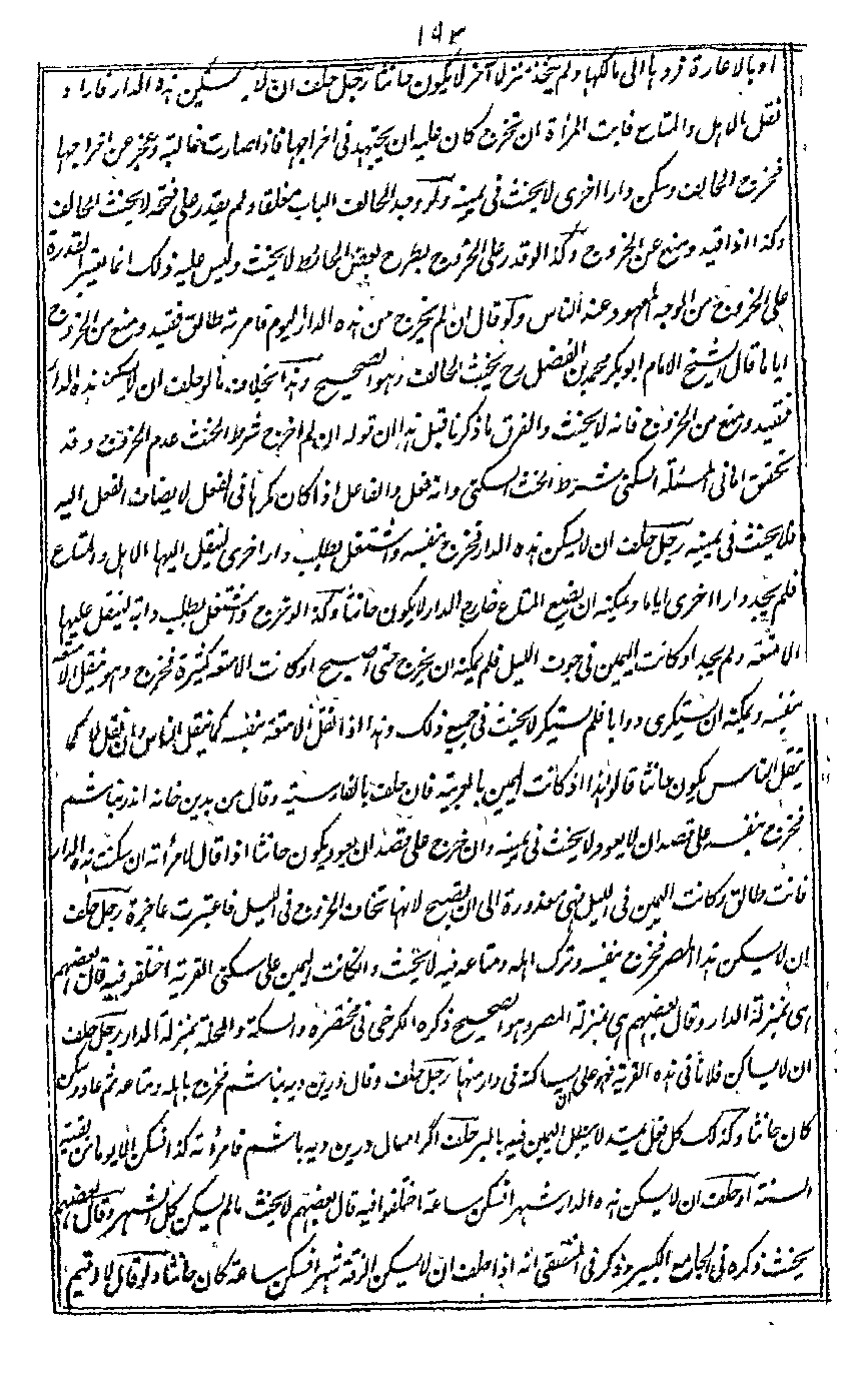 ١٩٣
او بالاعارة فردها الى مالكها ولم يتخذ منزلا آخر لا يكون حانثا رجل حلف ان لا يسكن هذه الدار فاراد
نقل الاهل والمتاع فابت المرأة ان تخرج كان عليه ان يجتهد فى اخراجها فاذا صارت غالبة وعجز عن اخراجها
فخرج الحالف وسكن دارا اخرى لا يحنث فى يمينه ولو وجد الحالف الباب مغلقا ولم يقدر على فتحه لا يحنث الحالف
وكذا اذا قيد ومنع عن الخروج وكذا لو قدر على الخروج بطرح بعض الحائط لا يحنث وليس عليه ذلك انما يعتبر القدرة
على الخروج من الوجه المعهود عند الناس ولو قال ان لم يخرج من هذه الدار اليوم فامرته طالق فقيد ومنع من الخروج
اياما قال الشيخ الامام ابو بكر محمد بن الفضل رح يحنث الحالف وهو الصحيح وهذا بخلاف ما لو حلف ان لا يسكن هذه الدار
فقيد ومنع من الخروج فانه لا يحنث والفرق ما ذكرنا قبل هذا ان قوله ان لم اخرج شرط الحنث عدم الخروج وقد
تحقق اما فى المسئلة السكنى شرط الحنث السكنى وانه فعل والفاعل اذا كان مكرها فى الفعل لا يضاف الفعل اليه
فلا يحنث فى يمينه رجل حلف ان لا يسكن هذه الدار فخرج بنفسه واشتغل بطلب دار اخرى لينقل اليها الاهل والمتاع
فلم يجد دارا اخرى اياما ويمكنه ان يضع المتاع خارج الدار لا يكون حانثا وكذا لو خرج واشتغل بطلب دابة لينقل عليها
الامتعة ولم يجد او كانت اليمين فى جوف الليل فلم يمكنه ان يخرج حتى اصبح او كانت الامتعة كثيرة فخرج وهو ينقل الامتعة
بنفسه ويمكنه ان يستكرى دوابا فلم يستكر لا يحنث فى جميع ذلك وهذا اذا نقل الامتعة بنفسه كما ينقل الناس وان نقل لا كما
ينقل الناس يكون حانثا قالوا هذا اذا كانت اليمين بالعربية فان حلف بالفارسية وقال من بدين خانه اندر نباشم
فخرج بنفسه على قصد ان لا يعود لا يحنث فى يمينه وان خرج على قصد ان يعود يكون حانثا اذا قال لامرأته ان سكنت هذه الدار
فانت طالق وكانت اليمين فى الليل فهى معذورة الى ان يصبح لانها تخاف الخروج فى الليل فاعتبرت عاجزة رجل حلف
ان لا يسكن هذا المصر فخرج بنفسه وترك اهله ومتاعه فيه لا يحنث وان كانت اليمين على سكنى القرية اختلفوا فيه قال بعضهم
هى بمنزلة الدار وقال بعضهم هى بمنزلة المصر وهو الصحيح ذكره الكرخى فى مختصره والسكة والمحلة بمنزلة الدار رجل حلف
ان لا يساكن فلانا فى هذه القرية فهو على ان يساكنه فى دار منها رجل حلف وقال درين ديه نباشم فخرج باهله ومتاعه ثم عاد وسكن
كان حانثا وكذلك كل فعل يمتد لا يبطل اليمين فيه بالبر حلف اگر امسال درين ديه باشم فامرأته كذا فسكن الا يوما من بقية
السنة او حلف ان لا يسكن هذه الدار شهرا فسكن ساعة اختلفوا فيه قال بعضهم لا يحنث ما لم يسكن كل الشهر وقال بعضهم
يحنث ذكره فى الجامع الكبير وذكر فى المنتقى انه اذا حلف ان لا يسكن الرقة شهرا فسكن ساعة كان حانثا ولو قال لا اقيم